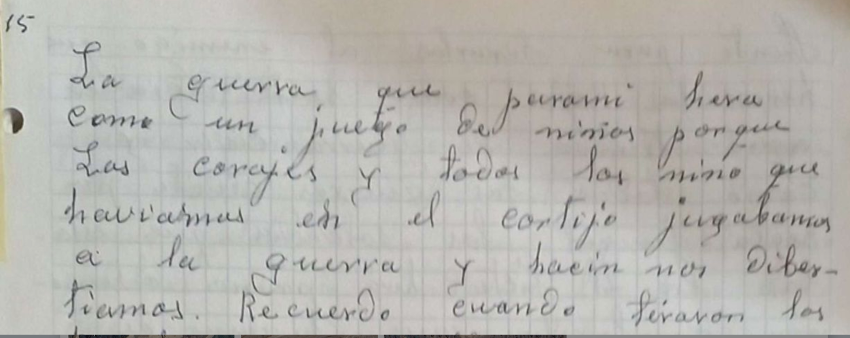 15
La guerra que parami hera
como un juego de niños porque
Las corajes y todos los nino que
haviamos en el cortijo jugabamos
a la guerra y hacin nos diber-
tiamos. Recuerdo cuando tiraron los